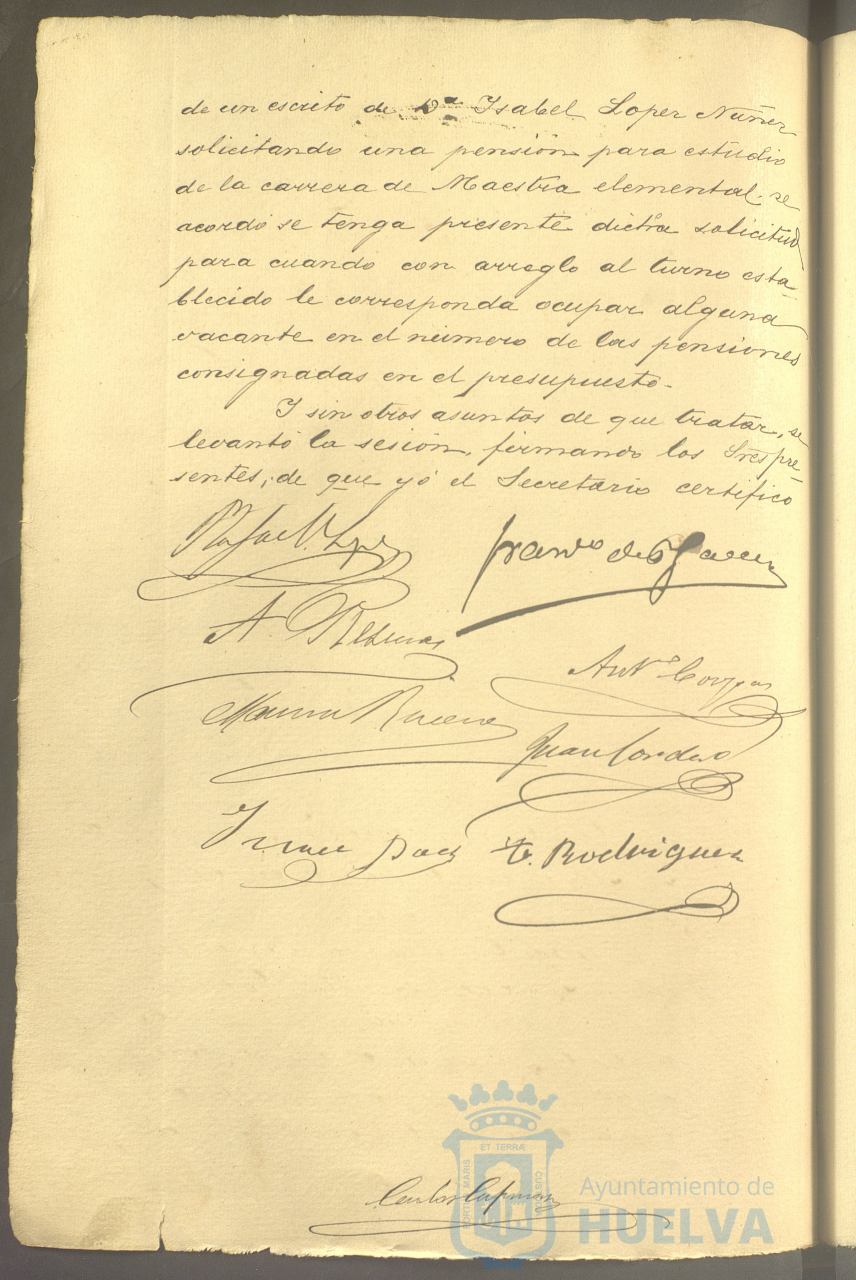 de un escrito de Dª Isabel Lopez Nuñez
solicitando una pensión para estudio
de la carrera de Maestra elemental se
acordó se tenga presente dicha solicitud
para cuando con arreglo al turno esta-
blecido le corresponda ocupar alguna
vacante en el número de las pensiones
consignadas en el presupuesto.-
I sin otros asuntos de que tratar, se
levantó la sesión, firmando los Sres pre-
sentes, de que yó el Secretario certifico
Juan Cordero
T. Rodriguez
ET TERRÆ
MARIS
Ayuntamiento de
HUELVA